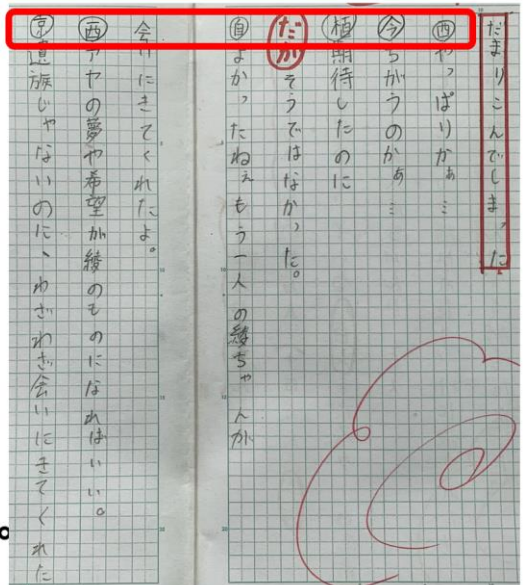 だまりこんでしまった
西やっぱりかぁ…
今ちがうのかぁ…
植期待したのに
だがそうではなかった。
自よかったねぇもう一人の綾ちゃんが
会いにきてくれたよ。
西アヤの夢や希望が綾のものになればいい。
京遺族じゃないのに、わざわざ会いにきてくれた